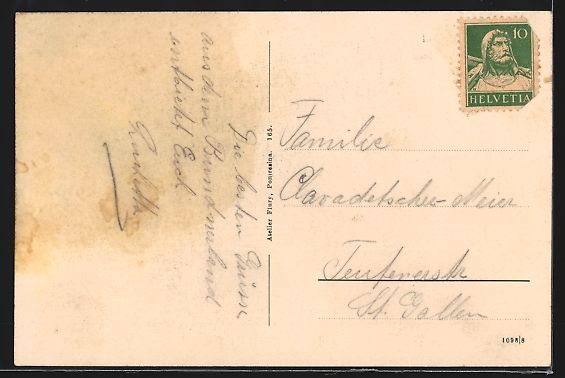 Die besten Grüsse
aus dem Bündnerland
entbietet Euch
Atelier Flury, Pontresina. 165.
10
HELVETIA
Familie
Clavadetscher-Meier
Teufenerstr
St. Gallen
1098/8